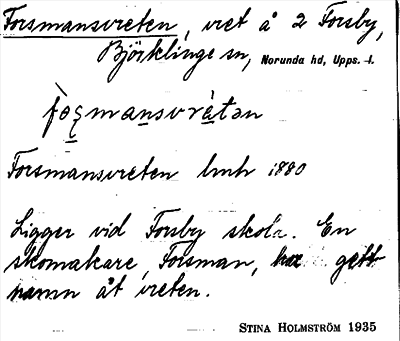 Forsmansvreten, vret å 2 Forsby,
Björklinge sn, Norunda hd, Upps. l.
Forsmansvreten lmh 1880
Ligger vid Forsby skola. En
skomakare, Forsman, har gett
namn åt vreten.
STINA HOLMSTRÖM 1935